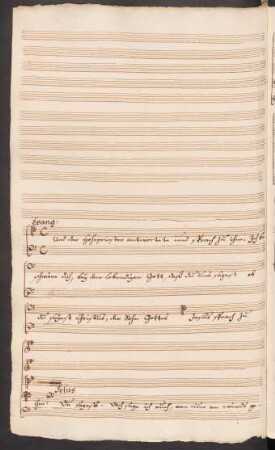 Evang:
Und der Hohepriester antwortete und sprach zu ihm: Ich be
schwere dich, bey dem lebendigen Gott, daß du uns sagest ob
du seyest Christus, der Sohn Gottes Jesus sprach zu
Jesus
ihm: Du sagests. Doch sage ich euch, von nun an